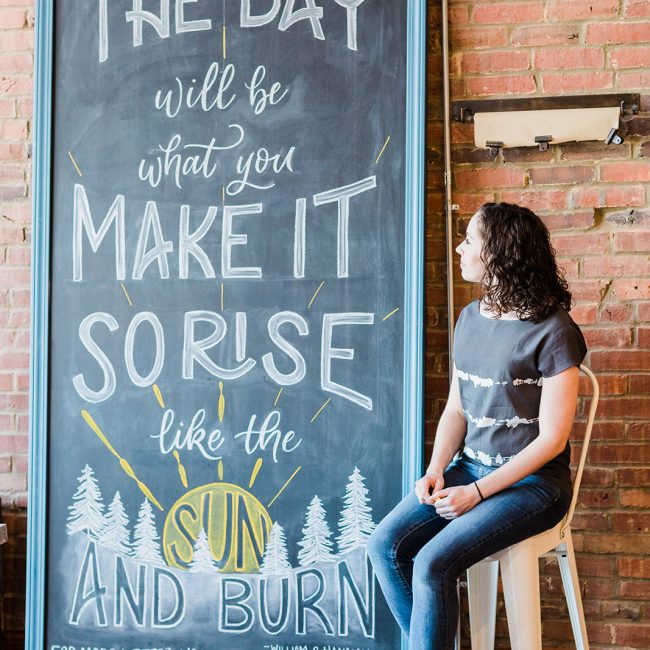 THE DAY
will be
what you
MAKE IT
SO RISE
like the
SUN
AND BURN